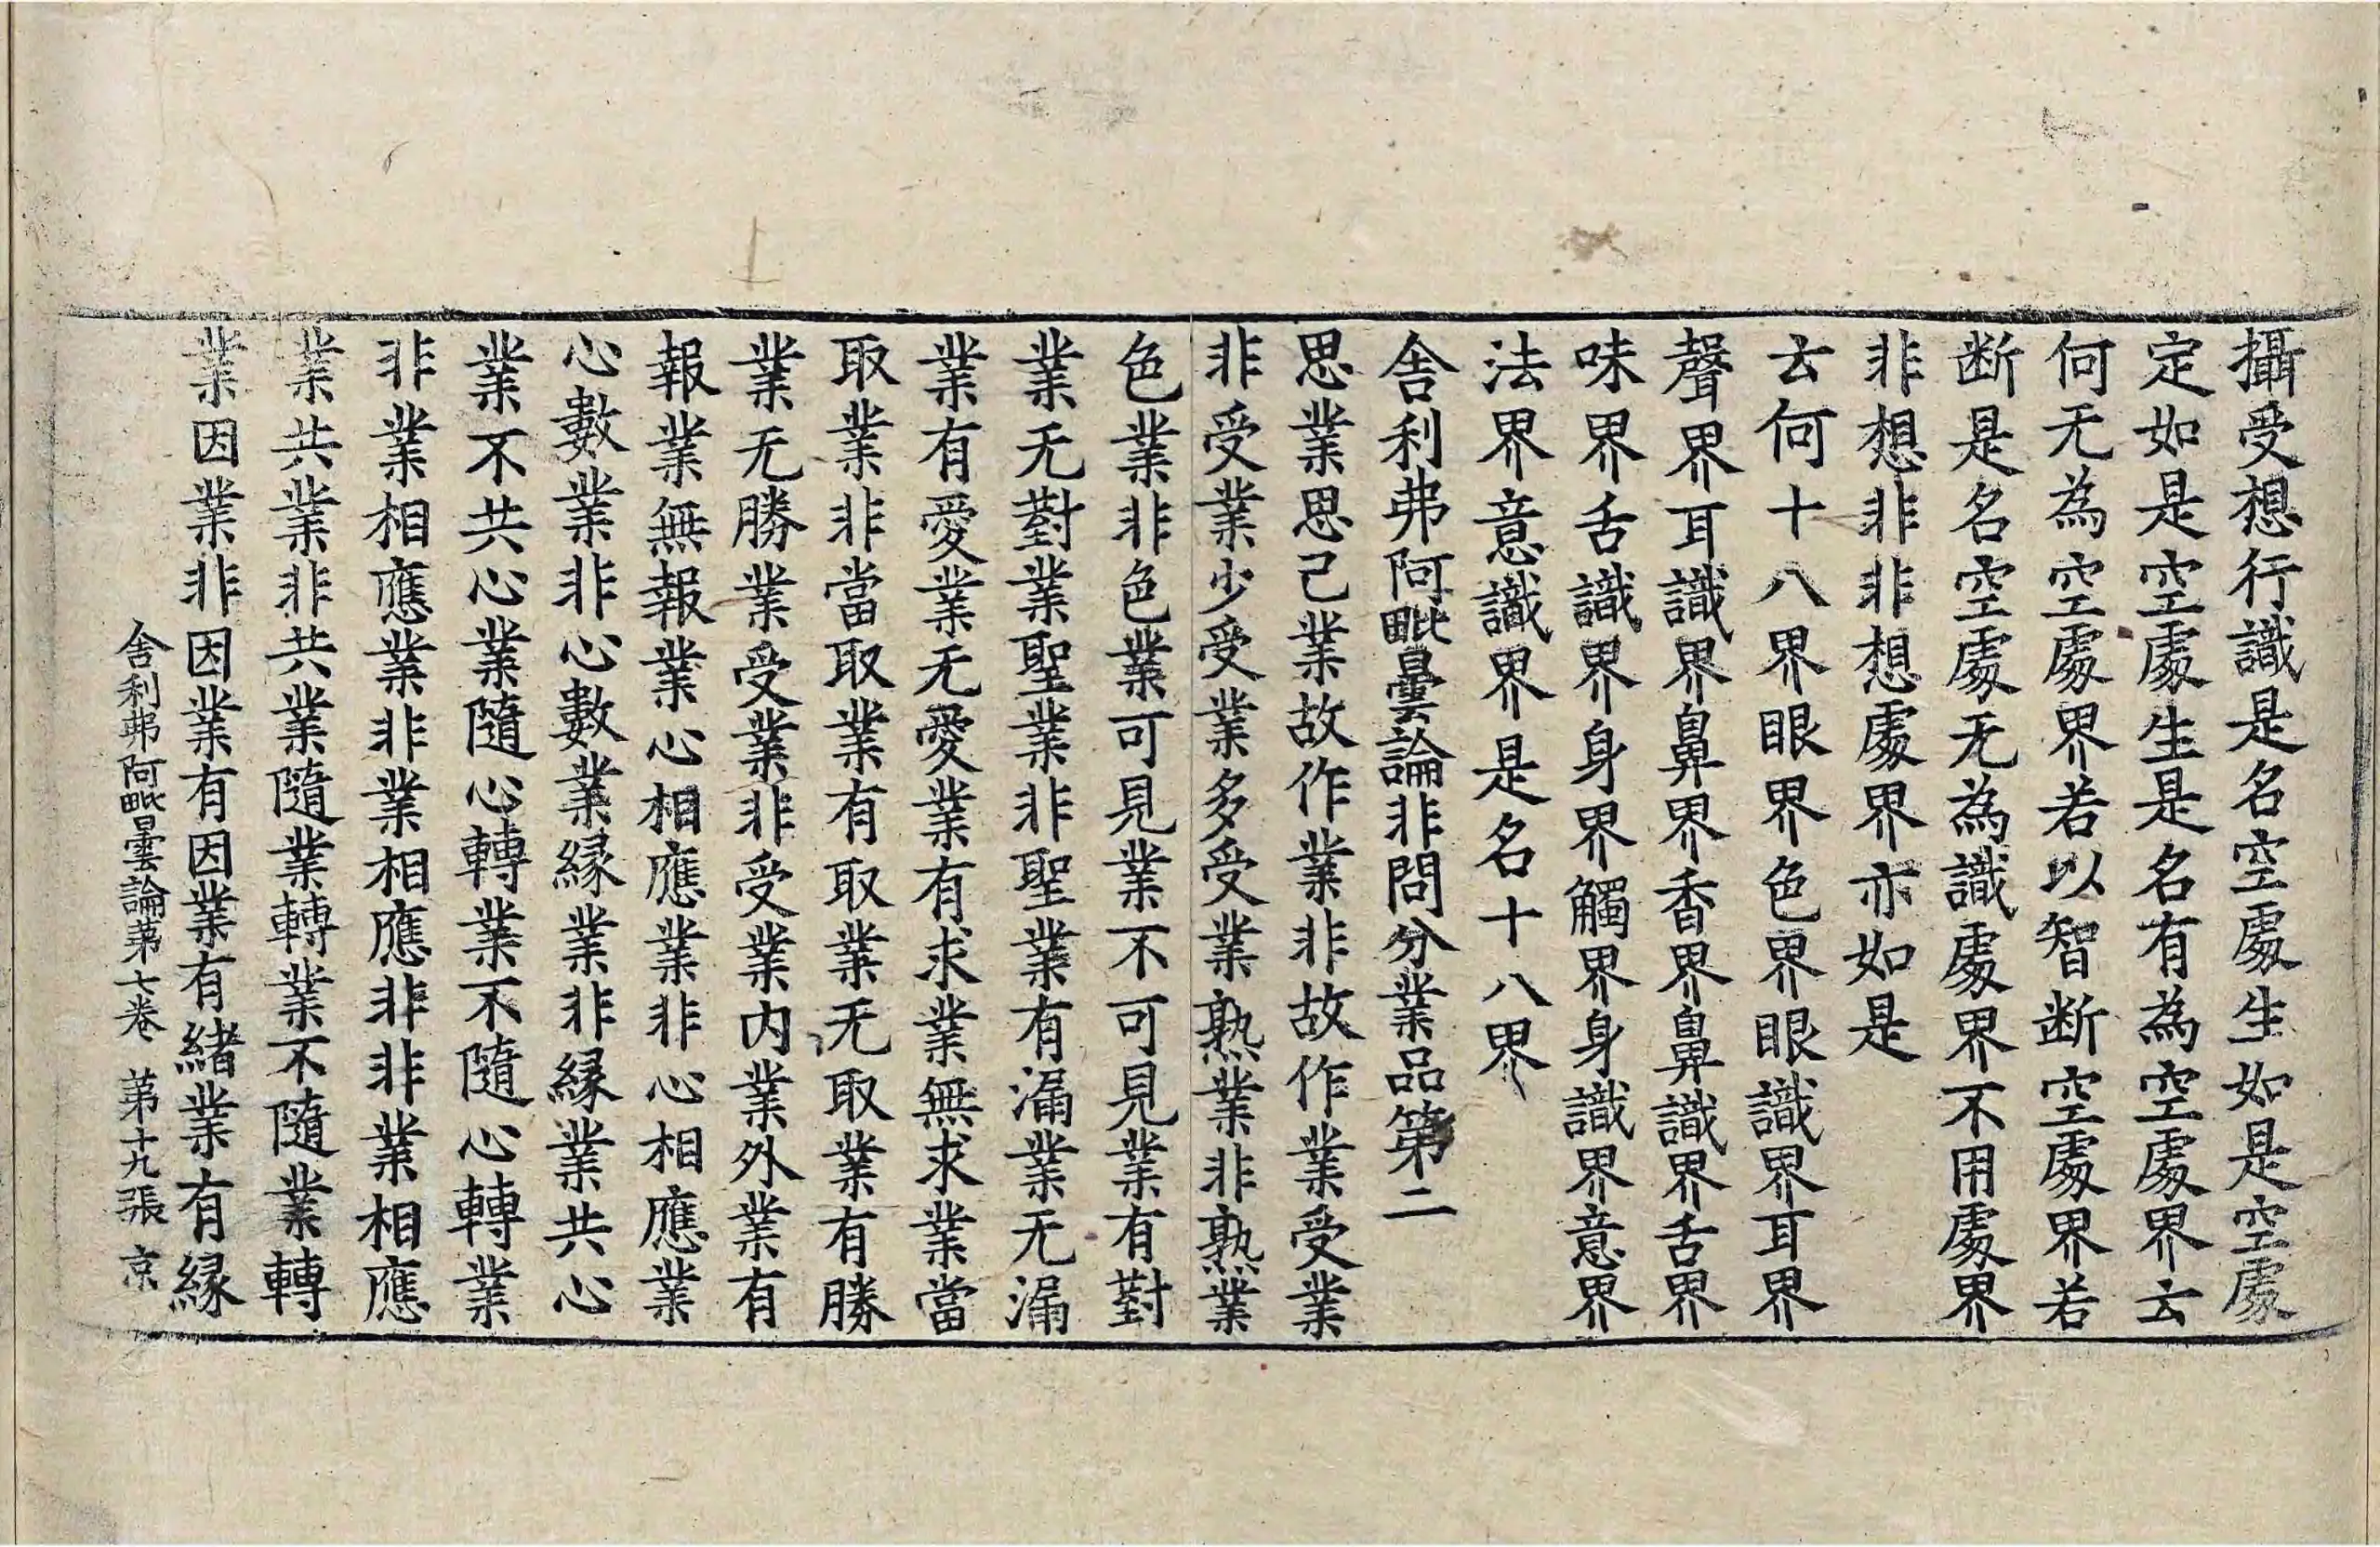 攝受想行識是名空處生如是空處
定如是空處生是名有為空處界云
何无為空處界若以智断空處界若
断是名空處无為識處界不用處界
非想非非想處界亦如是
云何十八界眼界色界眼識界耳界
聲界耳識界鼻界香界鼻識界舌界
味界舌識界身界觸界身識界意界
法界意識界是名十八界
舍利弗阿毗曇論非問分業品第二
思業思已業故作業非故作業受業
非受業少受業多受業熟業非熟業
色業非色業可見業不可見業有對
業无對業聖業非聖業有漏業无漏
業有愛業无愛業有求業無求業當
取業非當取業有取業无取業有勝
業无勝業受業非受業内業外業有
報業無報業心相應業非心相應業
心數業非心數業縁業非縁業共心
業不共心業隨心轉業不隨心轉業
非業相應業非業相應非非業相應
業共業非共業隨業轉業不隨業轉
業因業非因業有因業有緒業有縁
舍利弗阿毗曇論第七卷 第十九張 京